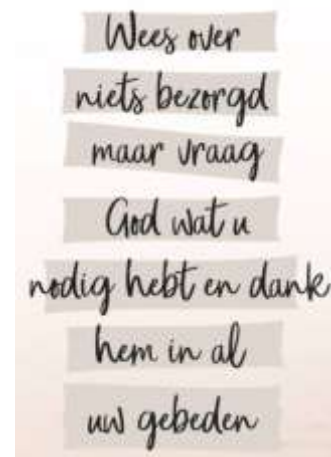 Wees over
niets bezorgd
maar vraag
God wat u
nodig hebt en dank
hem in al
uw gebeden